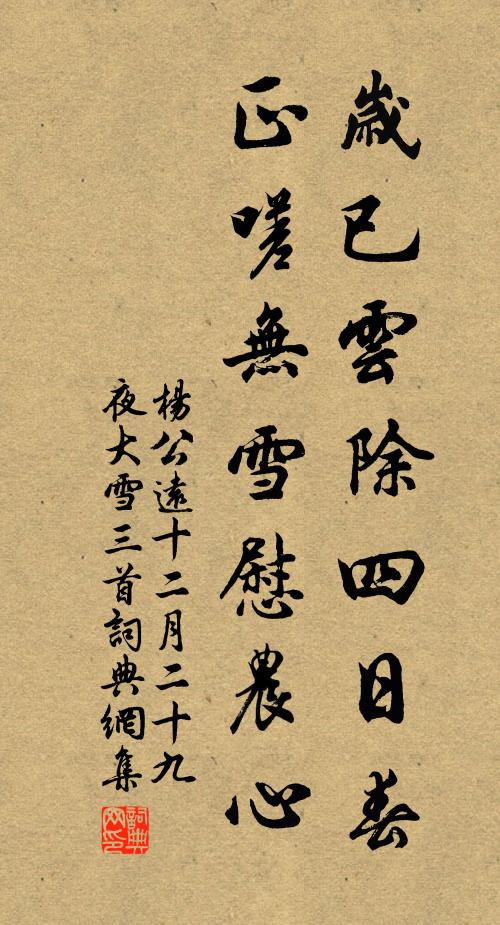 歲已雲除四日春
正嗟無雪慰農心
楊公遠十二月二十九
夜大雪三首詞典網集
詞典
网印